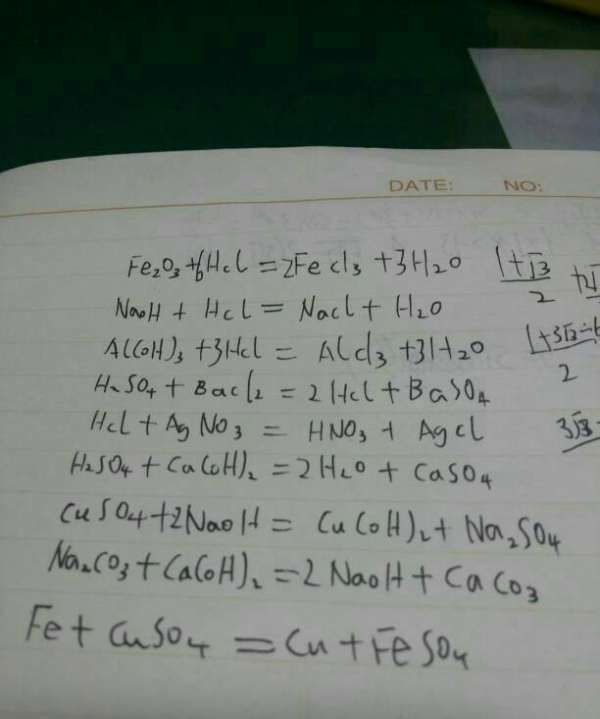 DATE: NO:
Fe₂O₃ + 6Hcl = 2Fecl₃ + 3H₂O
NaoH + Hcl = Nacl + H₂O
Al(oH)₃ + 3Hcl = Alcl₃ + 3H₂O
H₂SO₄ + Bacl₂ = 2Hcl + BaSO₄
Hcl + AgNO₃ = HNO₃ + Agcl
H₂SO₄ + Ca(oH)₂ = 2H₂O + CaSO₄
CuSO₄ + 2NaoH = Cu(oH)₂ + Na₂SO₄
Na₂CO₃ + Ca(oH)₂ = 2NaoH + CaCO₃
Fe + CuSO₄ = Cu + FeSO₄
1+√3
2
2